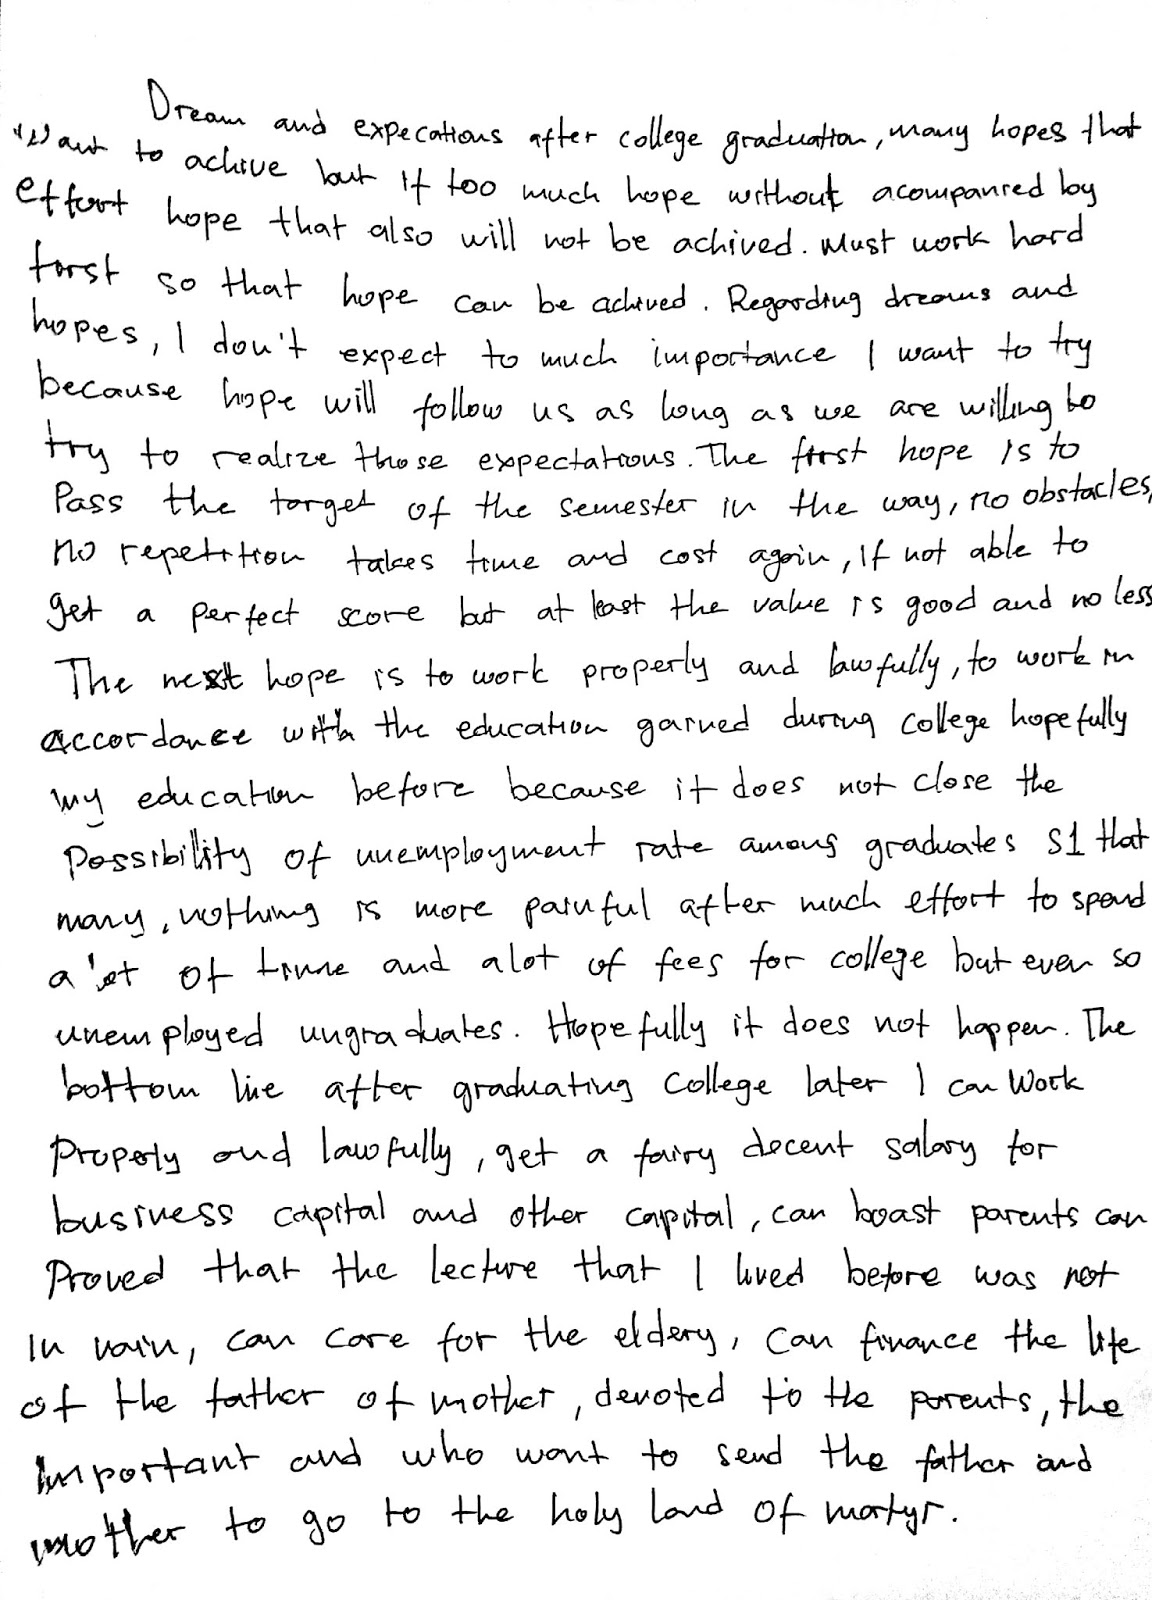 Dream and expecations after college graduation, many hopes that
want to achive but if too much hope without acompanied by
effort hope that also will not be achived. Must work hard
first so that hope can be achived. Regarding dreams and
hopes, I don't expect to much importance I want to try
because hope will follow us as long as we are willing to
try to realize those expectations. The first hope is to
Pass the target of the semester in the way, no obstacles,
no repetition takes time and cost again, if not able to
get a perfect score but at least the value is good and no less
The next hope is to work properly and lawfully, to work in
accordance with the education garned during college hopefully
my education before because it does not close the
Possibility of unemployment rate among graduates S1 that
many, nothing is more painful after much effort to spend
a lot of time and alot of fees for college but even so
unemployed ungraduates. Hopefully it does not happen. The
bottom line after graduating College later I can Work
Properly and lawfully, get a fairy decent salary for
business capital and other capital, can boast parents can
Proved that the lecture that I lived before was not
In vain, can care for the eldery, can finance the life
of the father of mother, devoted to the parents, the
Important and who want to send the father and
mother to go to the holy land of martyr.